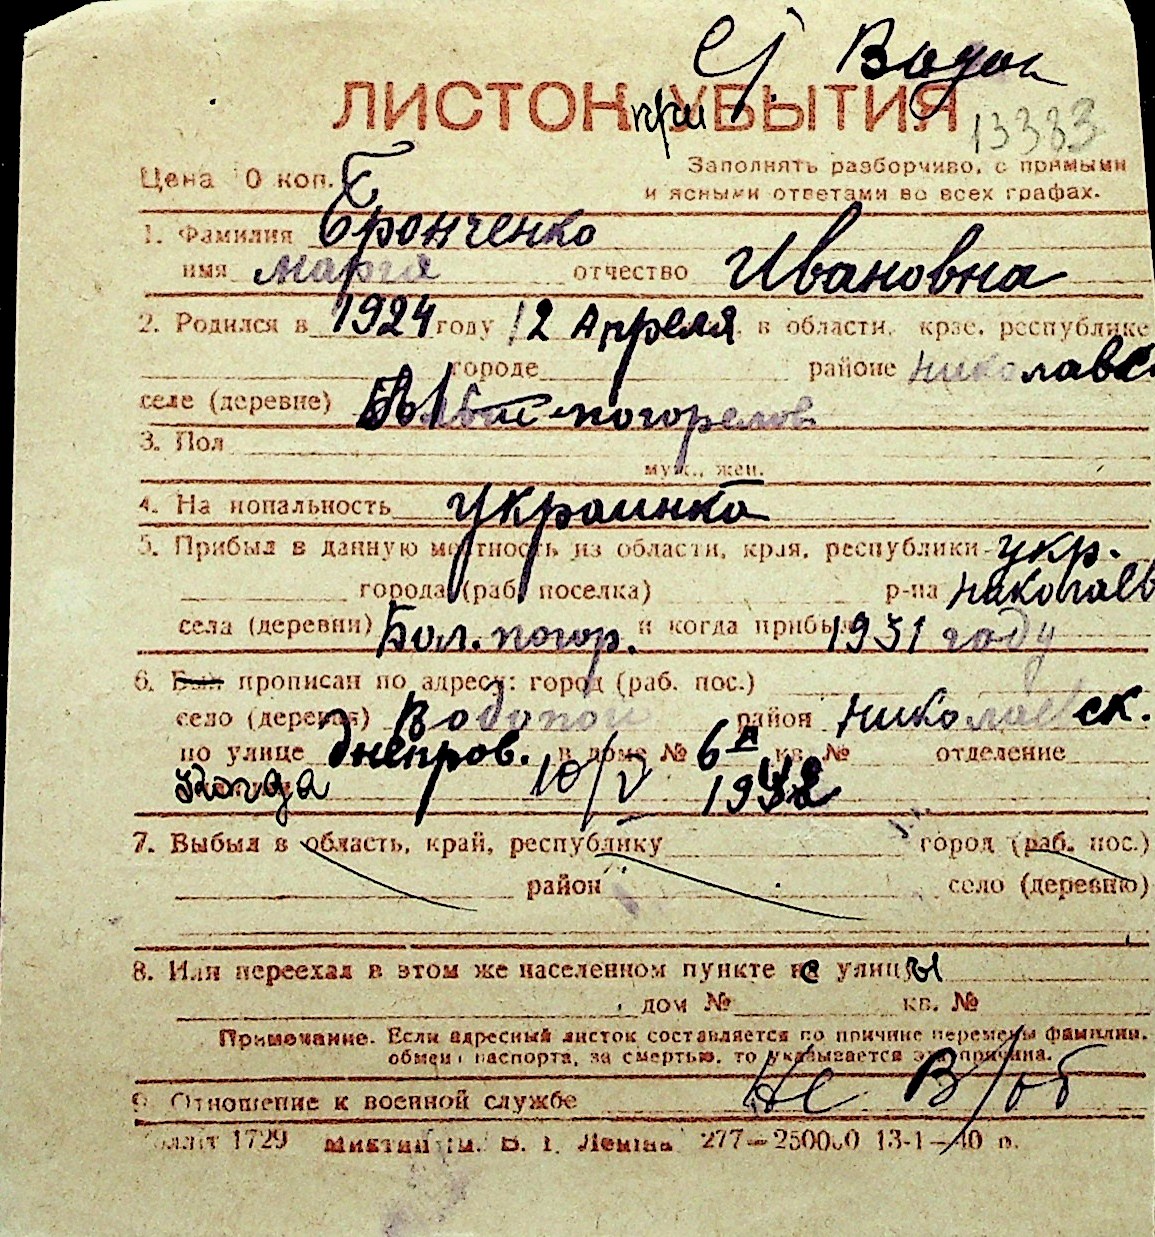 с/ Водоп
ЛИСТОК при УБЫТИЯ
13383
Цена 10 коп. Б
Заполнять разборчиво, с прямыми
и ясными ответами во всех графах.
1. Фамилия Бронченко
имя Мария отчество Ивановна
2. Родился в 1924 году 12 Апреля в области, крае, республике
городе районе Николаевс
селе (деревне) погорелов
3. Пол
муж., жен.
4. Национальность украинка
5. Прибыл в данную местность из области, края, республики укр.
города (раб. поселка) р-на Николаев
села (деревни) Бол. погор. и когда прибыл 1931 году
6. Был прописан по адресу: город (раб. пос.)
село (деревня) Водопой район Николаевск.
по улице Днепров. в доме № 6А кв. № отделение
Когда 10/V 1942
7. Выбыл в область, край, республику город (раб. пос.)
район село (деревню)
8. Или переехал в этом же населенном пункте с улицы
дом № кв. №
Примечание. Если адресный листок составляется по причине перемены фамилии,
обмена паспорта, за смертью, то указывается эта причина.
9. Отношение к военной службе Не в/об
1729 277—250000 13-1—40 р.